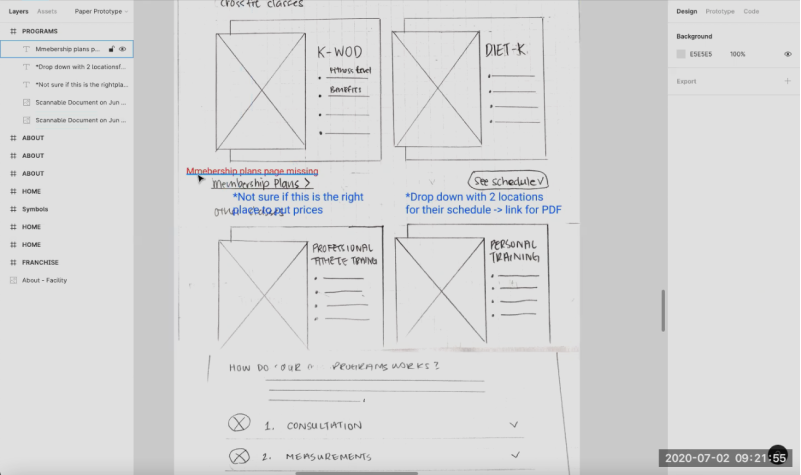 Layers
Assets
Paper Prototype
Design
Prototype
Code
PROGRAMS
Mmebership plans p...
*Drop down with 2 locationsf...
*Not sure if this is the rightpla...
Scannable Document on Jun ...
Scannable Document on Jun ...
ABOUT
ABOUT
ABOUT
HOME
Symbols
HOME
HOME
FRANCHISE
About - Facility
crossfit classes
K-WOD
Fitness level
Benefits
DIET-K
Mmebership plans page missing
Membership Plans >
See schedule
*Not sure if this is the right
place to put prices
*Drop down with 2 locations
for their schedule -> link for PDF
other classes
PROFESSIONAL
ATHLETE TRAINING
PERSONAL
TRAINING
HOW DO "OUR" PROGRAMS WORKS?
1. CONSULTATION
2. MEASUREMENTS
Background
E5E5E5
100%
Export
2020-07-02 09:21:55